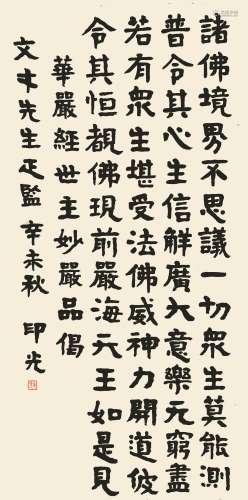 諸佛境界不思議一切衆生莫能測
普令其心生信解廣大意樂无窮盡
若有衆生堪受法佛威神力開道彼
令其恒覩佛現前嚴海天王如是見
華嚴經世主妙嚴品偈
文木先生正監 辛未秋 印光